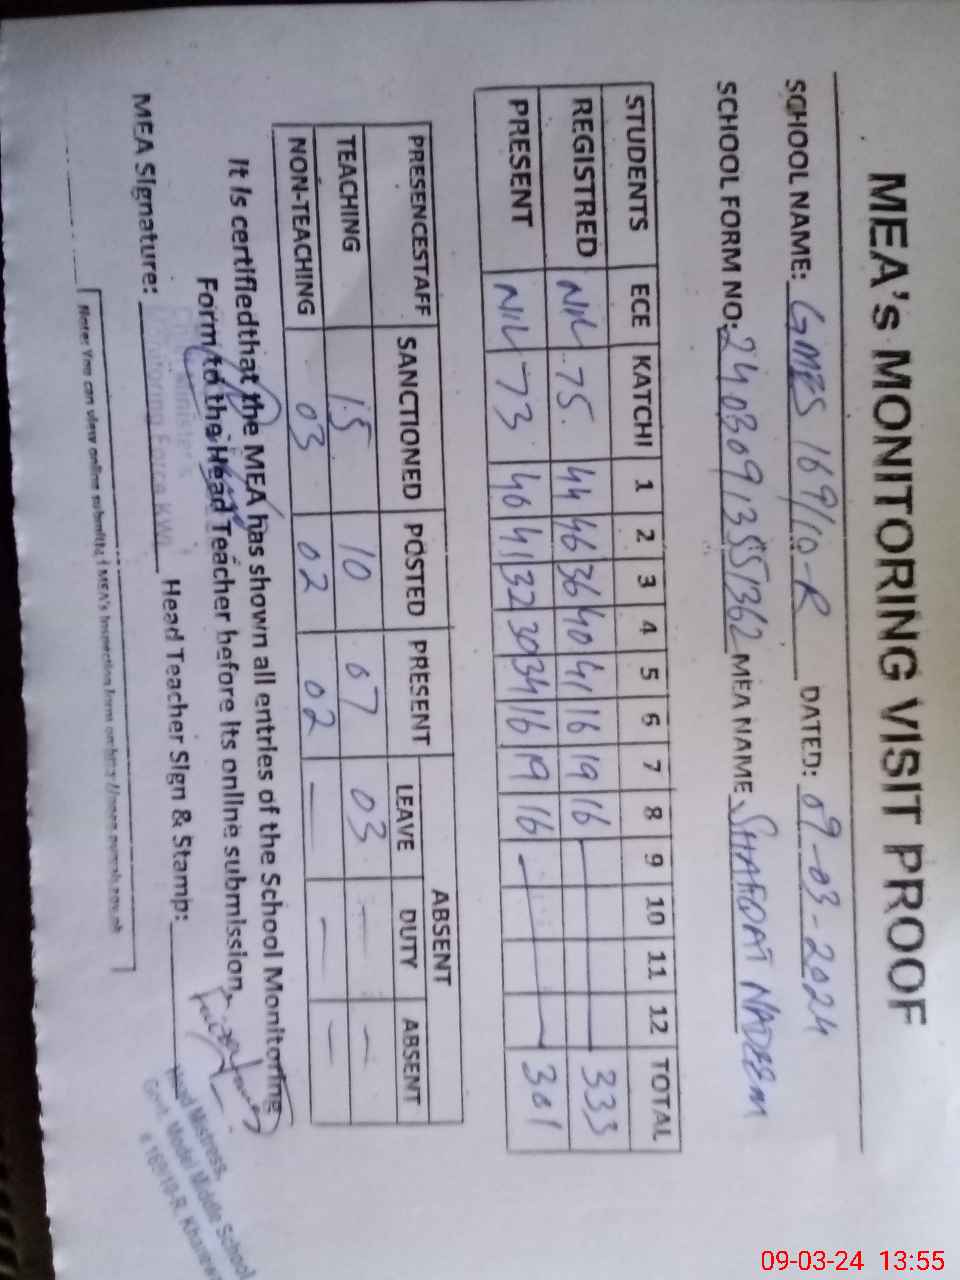 MEA's MONITORING VISIT PROOF
SCHOOL NAME: GMES 169/10-R DATED: 09-03-2024
SCHOOL FORM NO: 24030913551362 MEA NAME SHAFQAT NADEEM
STUDENTS ECE KATCHI 1 2 3 4 5 6 7 8 9 10 11 12 TOTAL
REGISTRED NIL 75 44 46 36 40 41 16 19 16 — 333
PRESENT NIL 73 40 41 32 30 34 16 19 16 — 301
ABSENT
PRESENCESTAFF SANCTIONED POSTED PRESENT LEAVE DUTY ABSENT
TEACHING 15 10 07 03 — —
NON-TEACHING 03 02 02 — — —
It is certifiedthat the MEA has shown all entries of the School Monitoring
Form to the Head Teacher before its online submission.
MEA Signature: Head Teacher Sign & Stamp:
Monitoring Force KWL
Head Mistress,
Govt. Model Middle School
169/10-R, 
Note: You can view online submitted MEA's Inspection form on
09-03-24 13:55